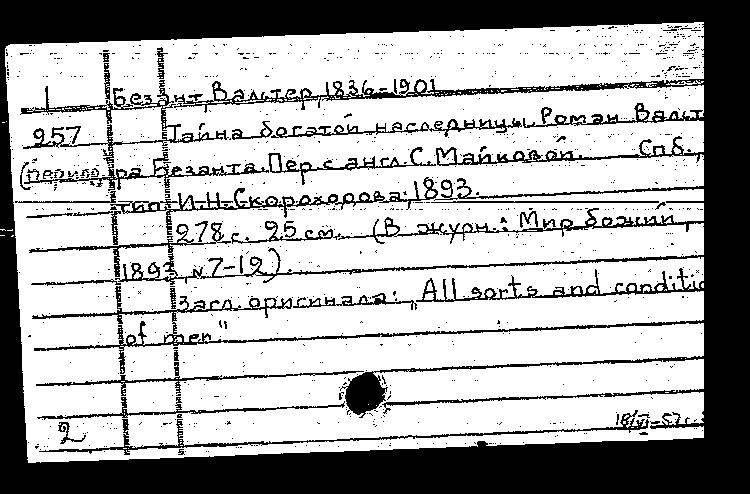 1 Безант, Вальтер, 1836-1901
957 Тайна богатой наследницы. Роман Вальт
(период.) ра Безанта. Пер. с англ. С. Майковой. Спб.,
тип. И.Н. Скороходова, 1893.
278 с. 25 см. (В журн.: Мир божий,
1893, № 7-12).
Загл. оригинала: „All sorts and conditio
of men"
2 18/VI-57 г.